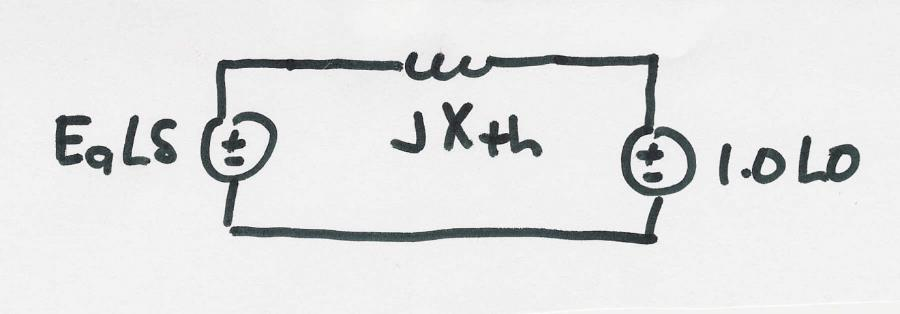 Ea∠δ
jXth
1.0∠0